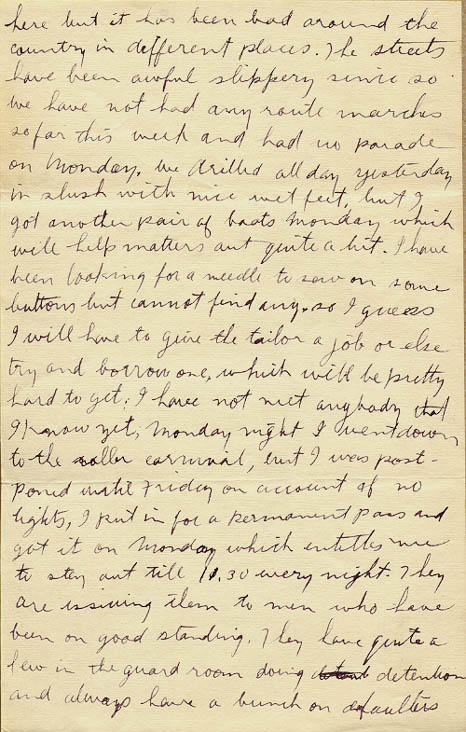 here but it has been bad around the
country in different places. The streets
have been awful slippery since so
we have not had any route marches
so far this week and had no parade
on Monday, we drilled all day yesterday
in slush with nice wet feet, but I
got another pair of boots Monday which
will help matters out quite a bit. I have
been looking for a needle to sew on some
buttons but cannot find any. so I guess
I will have to give the tailor a job or else
try and borrow one, which will be pretty
hard to get; I have not met anybody that
I know yet, Monday night I went down
to the roller carnival, but I was post-
poned until Friday on account of no
lights, I put in for a permanent pass and
got it on Monday which entitles me
to stay out till 11.30 every night. They
are issuing them to men who have
been on good standing. They have quite a
few in the guard room doing detention
and always have a bunch on defaulters